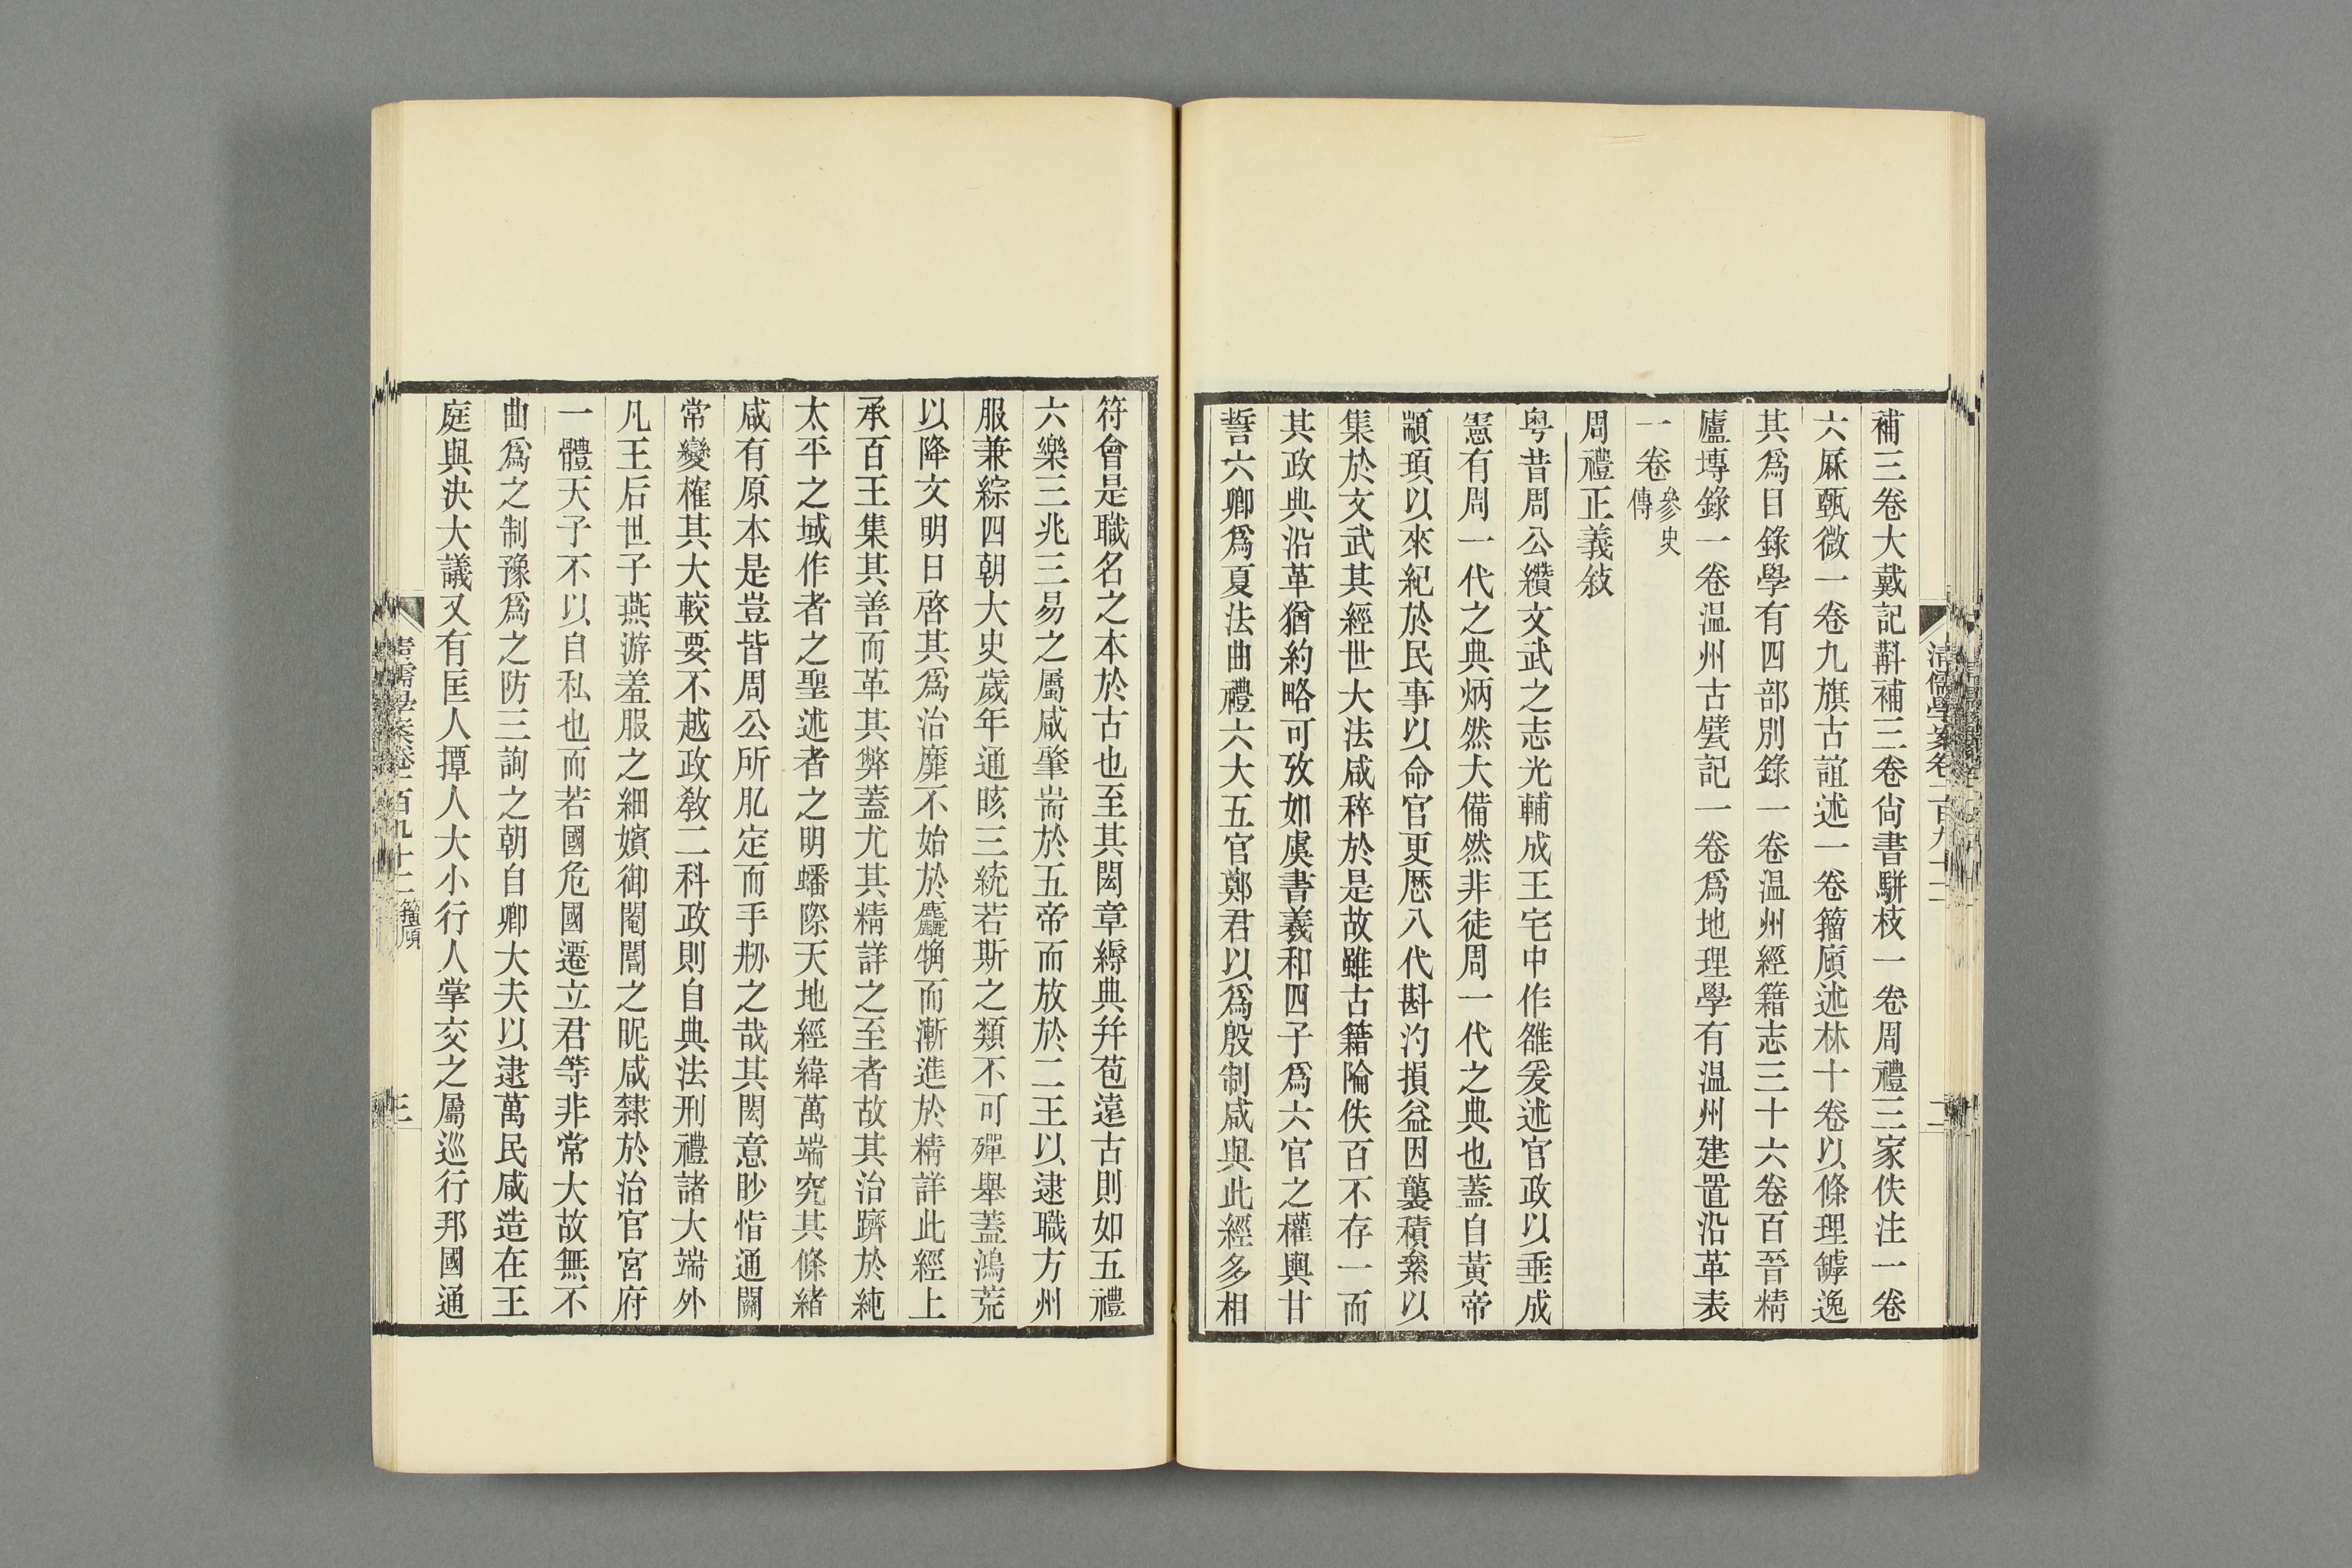 清儒學案卷二百九十二
二
補三卷大戴記斠補三卷尙書駢枝一卷周禮三家佚注一卷
六厤甄微一卷九旗古誼述一卷籀廎述林十卷以條理罅逸
其爲目錄學有四部別錄一卷溫州經籍志三十六卷百晉精
廬塼錄一卷溫州古甓記一卷爲地理學有溫州建置沿革表
一卷參史傳
周禮正義敍
粤昔周公纘文武之志光輔成王宅中作雒爰述官政以垂成
憲有周一代之典炳然大備然非徒周一代之典也蓋自黃帝
顓頊以來紀於民事以命官更歷八代斟汋損益因襲積絫以
集於文武其經世大法咸稡於是故雖古籍陯佚百不存一而
其政典沿革猶約略可攷如虞書羲和四子爲六官之權輿甘
誓六卿爲夏法曲禮六大五官鄭君以爲殷制咸與此經多相
符會是職名之本於古也至其閎章縟典幷苞遠古則如五禮
六樂三兆三易之屬咸肈耑於五帝而放於二王以逮職方州
服兼綜四朝大史歲年通晐三統若斯之類不可殫舉蓋鴻荒
以降文明日啓其爲治靡不始於麤觕而漸進於精詳此經上
承百王集其善而革其弊蓋尤其精詳之至者故其治躋於純
太平之域作者之聖述者之明蟠際天地經緯萬端究其條緒
咸有原本是豈皆周公所肊定而手刱之哉其閎意眇恉通關
常變榷其大較要不越政敎二科政則自典法刑禮諸大端外
凡王后世子燕游羞服之細嬪御閹閽之昵咸隸於治官宮府
一體天子不以自私也而若國危國遷立君等非常大故無不
曲爲之制豫爲之防三詢之朝自卿大夫以逮萬民咸造在王
庭與決大議又有匡人撢人大小行人掌交之屬巡行邦國通
清儒學案卷二百九十二 籀廎
三